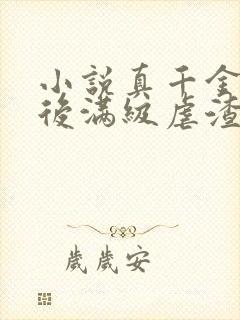 小說真千金
後滿級虐渣
歲歲安